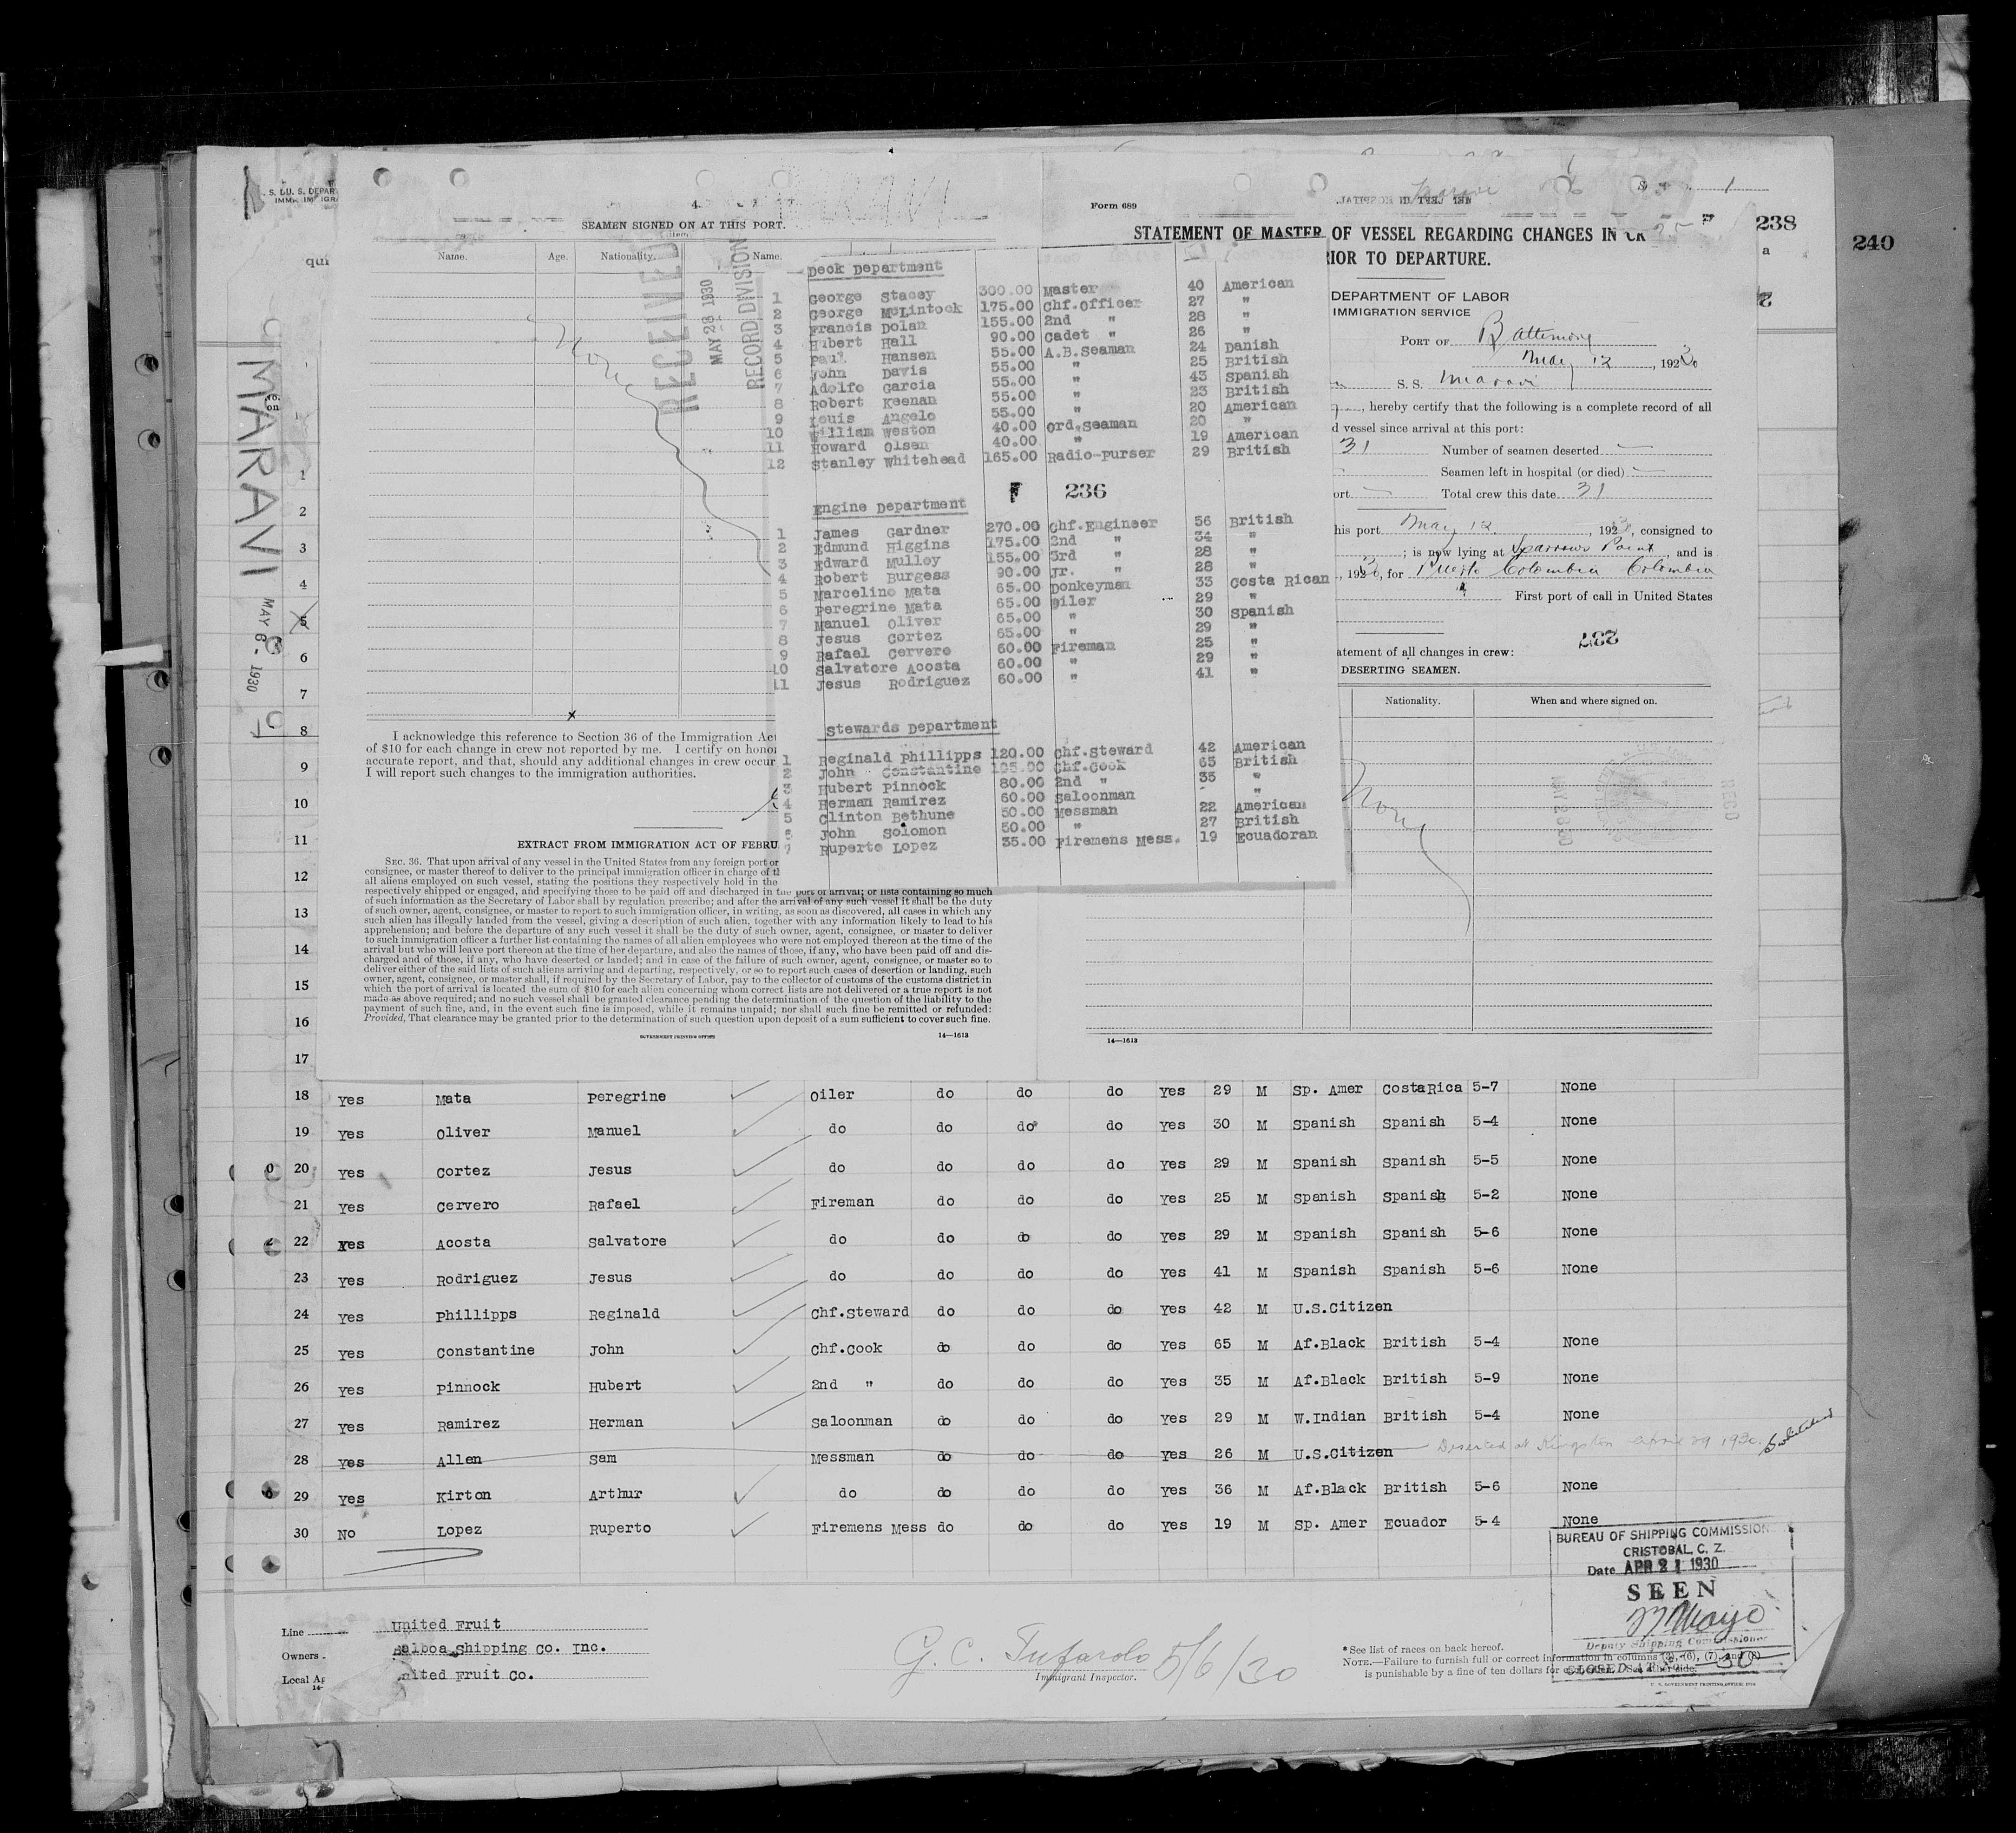 S. DU. S. DEPAR
IMMI IMMIGRA
SEAMEN SIGNED ON AT THIS PORT.
Name. Age. Nationality.
Name.
RECEIVED
MAY 28 1930
RECORD DIVISION
None
MARAVI
MAY 6 - 1930
I acknowledge this reference to Section 36 of the Immigration Act
of $10 for each change in crew not reported by me. I certify on honor
accurate report, and that, should any additional changes in crew occur
I will report such changes to the immigration authorities.
EXTRACT FROM IMMIGRATION ACT OF FEBRU
SEC. 36. That upon arrival of any vessel in the United States from any foreign port or
consignee, or master thereof to deliver to the principal immigration officer in charge of th
all aliens employed on such vessel, stating the positions they respectively hold in the
respectively shipped or engaged, and specifying those to be paid off and discharged in the port of arrival; or lists containing so much
of such information as the Secretary of Labor shall by regulation prescribe; and after the arrival of any such vessel it shall be the duty
of such owner, agent, consignee, or master to report to such immigration officer, in writing, as soon as discovered, all cases in which any
such alien has illegally landed from the vessel, giving a description of such alien, together with any information likely to lead to his
apprehension; and before the departure of any such vessel it shall be the duty of such owner, agent, consignee, or master to deliver
to such immigration officer a further list containing the names of all alien employees who were not employed thereon at the time of the
arrival but who will leave port thereon at the time of her departure, and also the names of those, if any, who have been paid off and dis-
charged and of those, if any, who have deserted or landed; and in case of the failure of such owner, agent, consignee, or master so to
deliver either of the said lists of such aliens arriving and departing, respectively, or so to report such cases of desertion or landing, such
owner, agent, consignee, or master shall, if required by the Secretary of Labor, pay to the collector of customs of the customs district in
which the port of arrival is located the sum of $10 for each alien concerning whom correct lists are not delivered or a true report is not
made as above required; and no such vessel shall be granted clearance pending the determination of the question of the liability to the
payment of such fine, and, in the event such fine is imposed, while it remains unpaid; nor shall such fine be remitted or refunded:
Provided, That clearance may be granted prior to the determination of such question upon deposit of a sum sufficient to cover such fine.
GOVERNMENT PRINTING OFFICE 14—1613
Deck Department
1 George Stacey 300.00 Master 40 American
2 George McLintock 175.00 Chf.Officer 27 "
3 Francis Dolan 155.00 2nd " 28 "
4 Hubert Hall 90.00 Cadet " 26 "
5 Paul Hansen 55.00 A.B.Seaman 24 Danish
6 John Davis 55.00 " 25 British
7 Adolfo Garcia 55.00 " 43 Spanish
8 Robert Keenan 55.00 " 23 British
9 Louis Angelo 55.00 " 20 American
10 William Weston 40.00 Ord.Seaman 20 "
11 Howard Olsen 40.00 " 19 American
12 Stanley Whitehead 165.00 Radio-purser 29 British
236
Engine Department
1 James Gardner 270.00 Chf.Engineer 56 British
2 Edmund Higgins 175.00 2nd " 34 "
3 Edward Mulloy 155.00 3rd " 28 "
4 Robert Burgess 90.00 Jr. " 28 "
5 Marcelino Mata 65.00 Donkeyman 33 Costa Rican
6 Peregrine Mata 65.00 Oiler 29 "
7 Manuel Oliver 65.00 " 30 Spanish
8 Jesus Cortez 65.00 " 29 "
9 Rafael Cervero 60.00 Fireman 25 "
10 Salvatore Acosta 60.00 " 29 "
11 Jesus Rodriguez 60.00 " 41 "
Stewards Department
1 Reginald Phillipps 120.00 Chf.Steward 42 American
2 John Constantine 105.00 Chf.Cook 65 British
3 Hubert Pinnock 80.00 2nd " 35 "
4 Herman Ramirez 60.00 Saloonman "
5 Clinton Bethune 50.00 Messman 22 American
6 John Solomon 50.00 " 27 British
7 Ruperto Lopez 35.00 Firemens Mess. 19 Ecuadoran
Form 689
STATEMENT OF MASTER OF VESSEL REGARDING CHANGES IN CR
RIOR TO DEPARTURE.
238
240
DEPARTMENT OF LABOR
IMMIGRATION SERVICE
PORT OF Baltimore
May 12, 1930
S. S. Maravi
, hereby certify that the following is a complete record of all
d vessel since arrival at this port:
31 Number of seamen deserted
Seamen left in hospital (or died)
ort Total crew this date 31
his port May 12, 1930, consigned to
; is now lying at Sparrows Point, and is
, 1930, for Puerto Colombia Colombia
First port of call in United States
237
atement of all changes in crew:
DESERTING SEAMEN.
Nationality. When and where signed on.
None
14—1613
1
2
3
4
5
6
7
8
9
10
11
12
13
14
15
16
17
18 Yes Mata Peregrine Oiler do do do Yes 29 M Sp. Amer CostaRica 5-7 None
19 Yes Oliver Manuel do do do do Yes 30 M Spanish Spanish 5-4 None
20 Yes Cortez Jesus do do do do Yes 29 M Spanish Spanish 5-5 None
21 Yes Cervero Rafael Fireman do do do Yes 25 M Spanish Spanish 5-2 None
22 Yes Acosta Salvatore do do do do Yes 29 M Spanish Spanish 5-6 None
23 Yes Rodriguez Jesus do do do do Yes 41 M Spanish Spanish 5-6 None
24 Yes Phillipps Reginald Chf.Steward do do do Yes 42 M U.S.Citizen
25 Yes Constantine John Chf.Cook do do do Yes 65 M Af.Black British 5-4 None
26 Yes Pinnock Hubert 2nd " do do do Yes 35 M Af.Black British 5-9 None
27 Yes Ramirez Herman Saloonman do do do Yes 29 M W.Indian British 5-4 None
28 Yes Allen Sam Messman do do do Yes 26 M U.S.Citizen Deserted at Kingston April 29 1930.
29 Yes Kirton Arthur do do do do Yes 36 M Af.Black British 5-6 None
30 No Lopez Ruperto Firemens Mess do do do Yes 19 M Sp. Amer Ecuador 5-4 None
BUREAU OF SHIPPING COMMISSION
CRISTOBAL, C. Z.
Date APR 21 1930
SEEN
Deputy Shipping Commissioner
Line United Fruit
Owners Balboa Shipping Co. Inc.
Local Ag United Fruit Co.
G. C. Tufarolo 5/6/30
Immigrant Inspector.
* See list of races on back hereof.
NOTE.—Failure to furnish full or correct information in columns (3), (6), (7), and (8)
is punishable by a fine of ten dollars for
U. S. GOVERNMENT PRINTING OFFICE